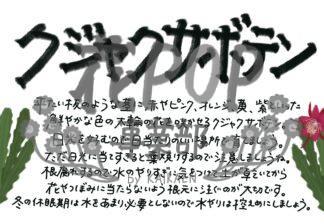 クジャクサボテン
平たい秋のような茎に、赤やピンク、オレンジ、黄、紫といった
鮮やかな色の大輪の花を咲かせるクジャクサボテン。
日光を好むので日当たりのいい場所で育てましょう。
ただ日光に当てすぎると葉焼けするので注意しましょうね。
根腐れするので水のやりすぎに気をつけて土が乾いてから
花やつぼみに当たらないよう根元に注ぐのが大切です。
冬の休眠期は水をあまり必要としないので水やりは控えめにしましょう。
花POP
事業部
BY KAIKAEN